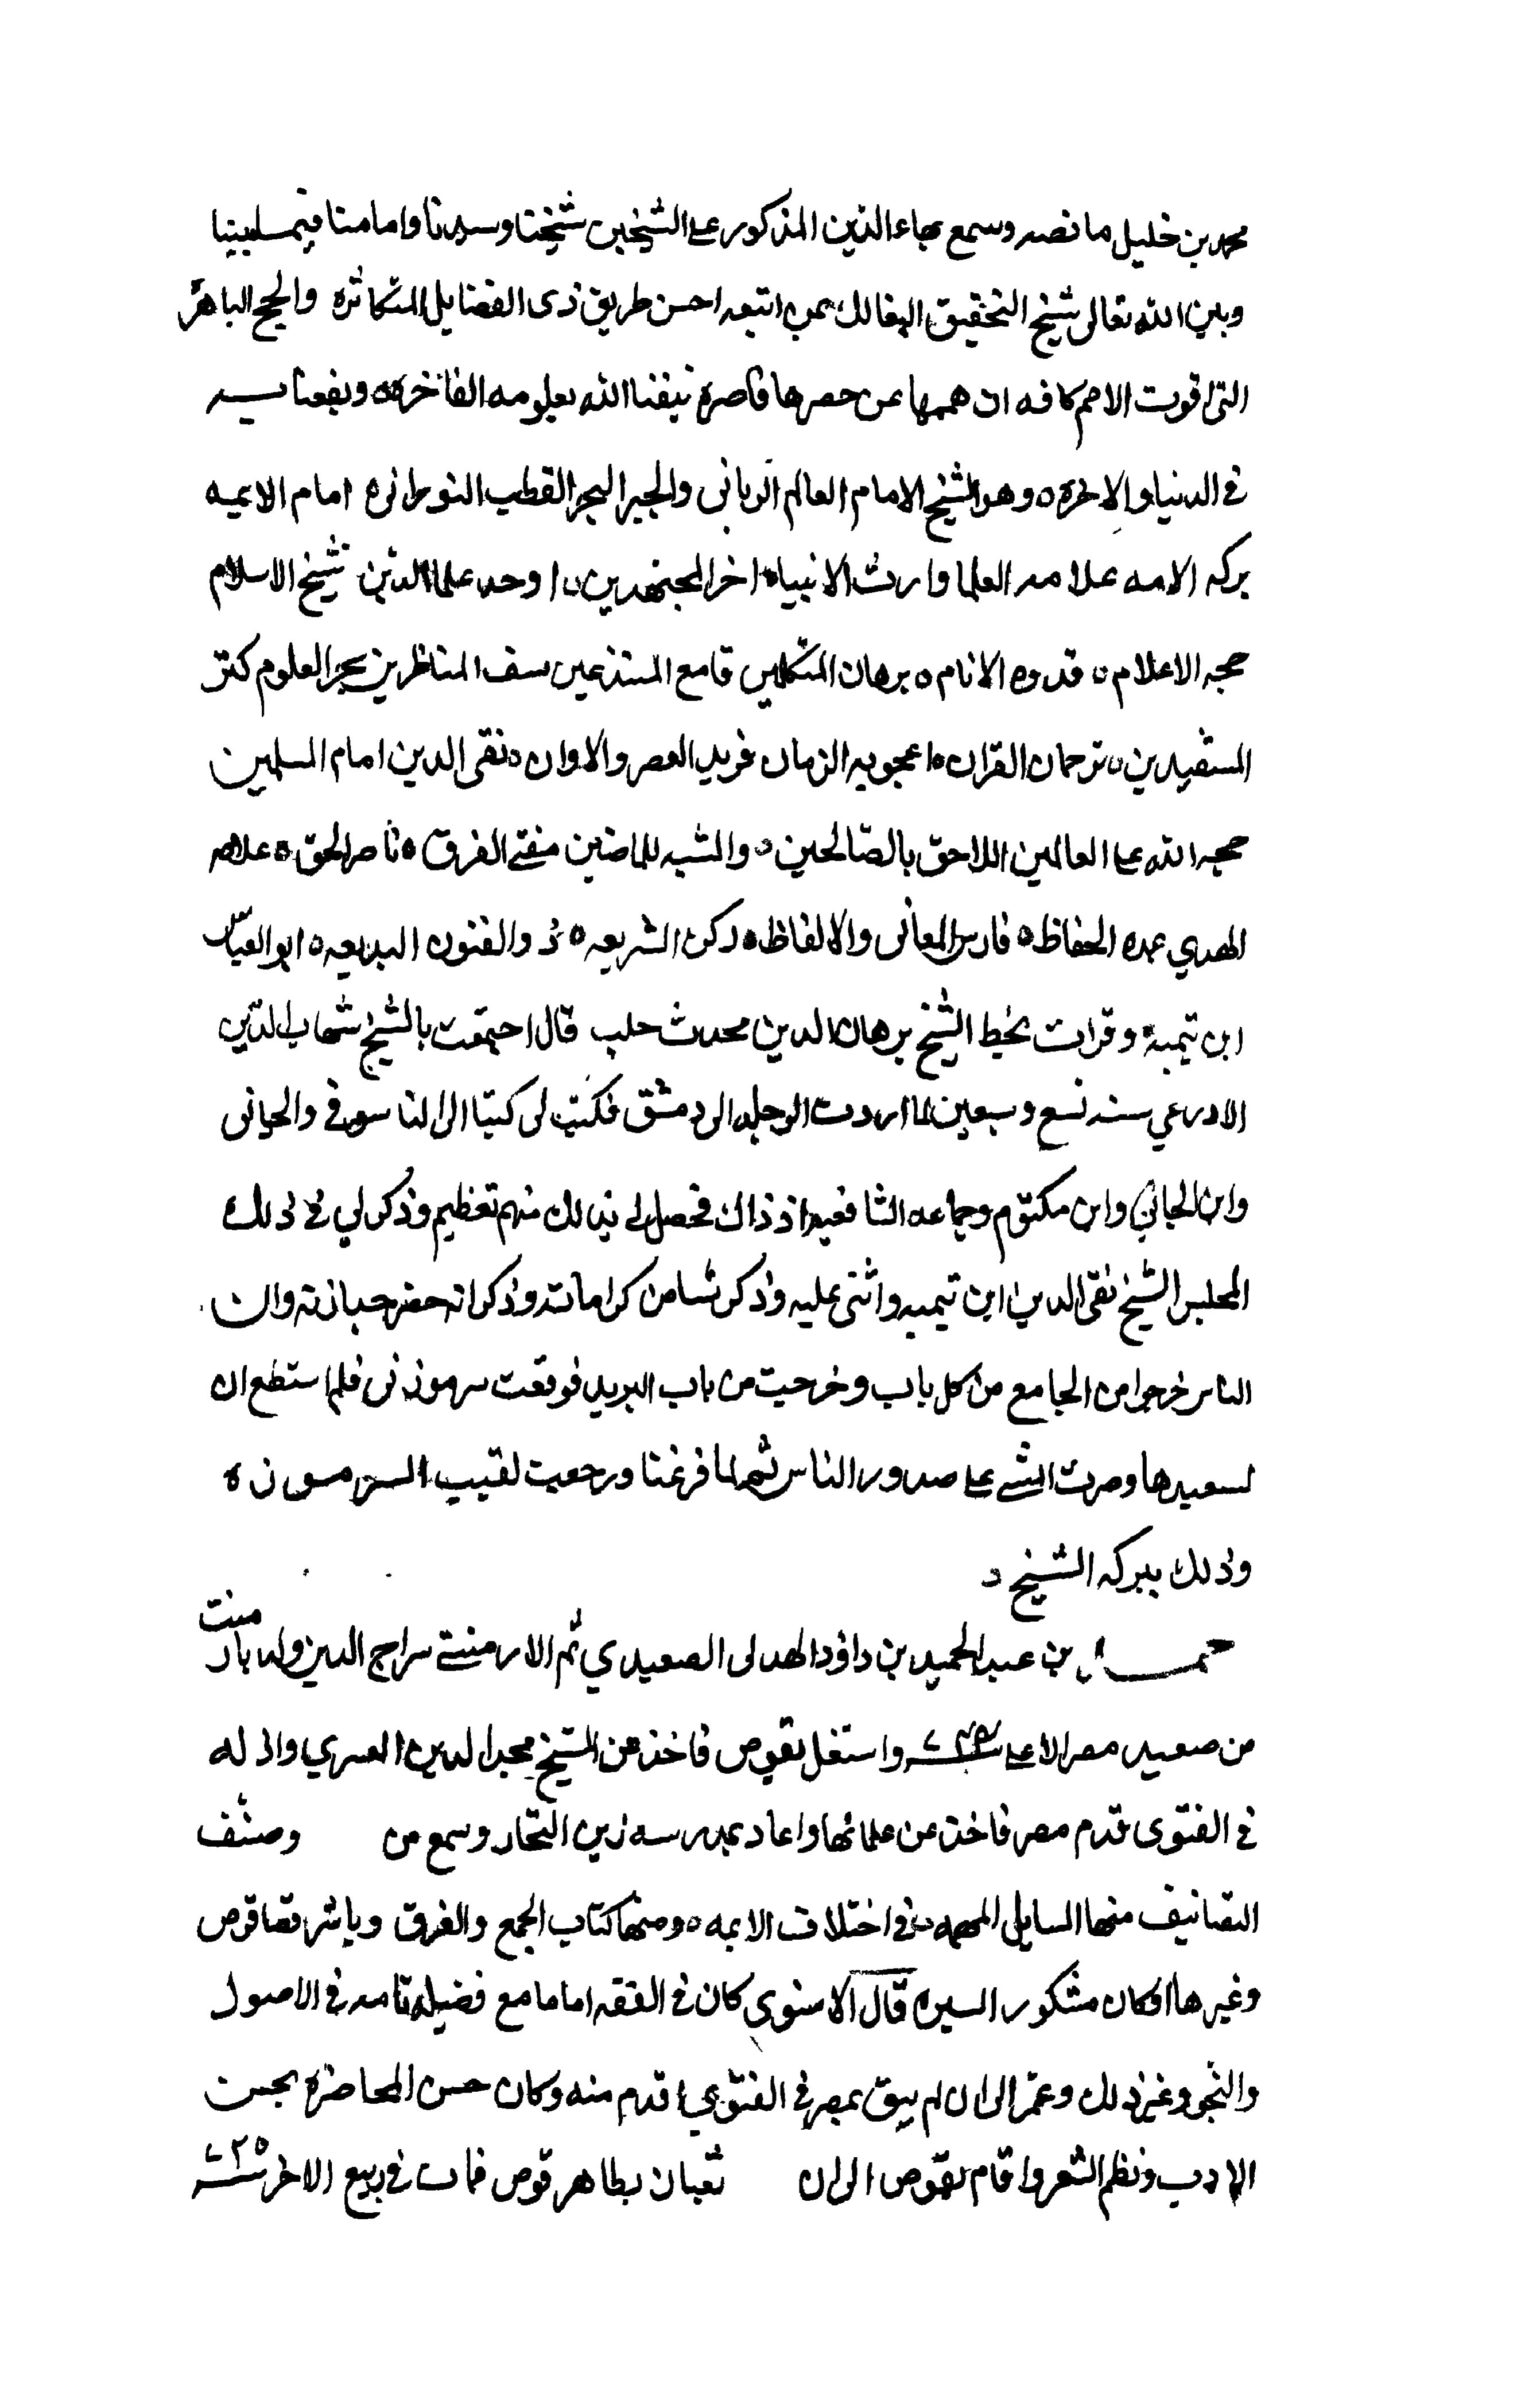 محمد بن خليل ما نصه وسمع بهاء الدين المذكور على الشيخين شيخنا وسيدنا وامامنا فيما بيننا
وبين الله تعالى شيخ التحقيق السالك بمن اتبعه احسن طريق ذى الفضايل المتكاثره والحجج الباهره
التى اقرت الامم كافه ان هممها عن حصرها قاصرة متعنا الله بعلومه الفاخرة ونفعنا به
فى الدنيا والاخرة وهو الشيخ الامام العالم الربانى والحبر البحر القطب النورانى امام الايمه
بركه الامه علامه العلما وارث الانبيا اخر المجتهدين اوحد علما الدين شيخ الاسلام
حجه الاعلام قدوه الانام برهان المتكلمين قامع المبتدعين سيف المناظرين بحر العلوم كنز
المستفيدين ترجمان القران اعجوبه الزمان فريد العصر والاوان تقى الدين امام المسلمين
حجه الله على العالمين اللاحق بالصالحين والمشبه بالماضين مفتى الفرق ناصر الحق علامه
الهدي عمده الحفاظ فارس المعانى والالفاظ ركن الشريعه ذو الفنون البديعه ابو العباس
ابن تيمية وقرات بخط الشيخ برهان الدين محدث حلب قال اجتمعت بالشيخ شهاب الدين
الاذرعي سنه تسع وسبعين لما اردت الرحله الى دمشق فكتب لى كتبا الى الياسوفى والحسبانى
وابن الجابي وابن مكتوم وجماعه الشافعيه اذ ذاك فحصل لى بذلك منهم تعظيم وذكر لي فى ذلك
المجلس الشيخ تقى الدين ابن تيميه واثنى عليه وذكر شيا من كراماته وذكر انه حضر جنازته وان
الناس خرجوا من الجامع من كل باب وخرجت من باب البريد فوقعت سرموذتى فلم استطع ان
استعيدها وصرت امشى على صدور الناس ثم لما فرغنا ورجعت لقيت السرموذه
وذلك ببركه الشيخ
بن عبد الحميد بن داود الهذلى الصعيدي ثم الارمنتى سراج الدين ولد بارمنت
من صعيد مصر الاعلى سنه واشتغل بقوص فاخذ عن الشيخ مجد الدين القشيري واذن له
فى الفتوى قدم مصر فاخذ عن علمائها واعاد بمدرسه زين التجار وسمع من وصنف
التصانيف منها المسايل المهمه فى اختلاف الايمه ومنها كتاب الجمع والفرق وباشر قضا قوص
وغيرها وكان مشكور السيره قال الاسنوى كان فى الفقه اماما مع فضيله تامه فى الاصول
والنحو وغير ذلك وعمر الى ان لم يبق بمصر فى الفتوي اقدم منه وكان حسن المحاضرة يحب
الادب ونظم الشعر واقام بقوص الى ان ثعبان بظاهر قوص فمات فى ربيع الاخر سنه ٧٢٥